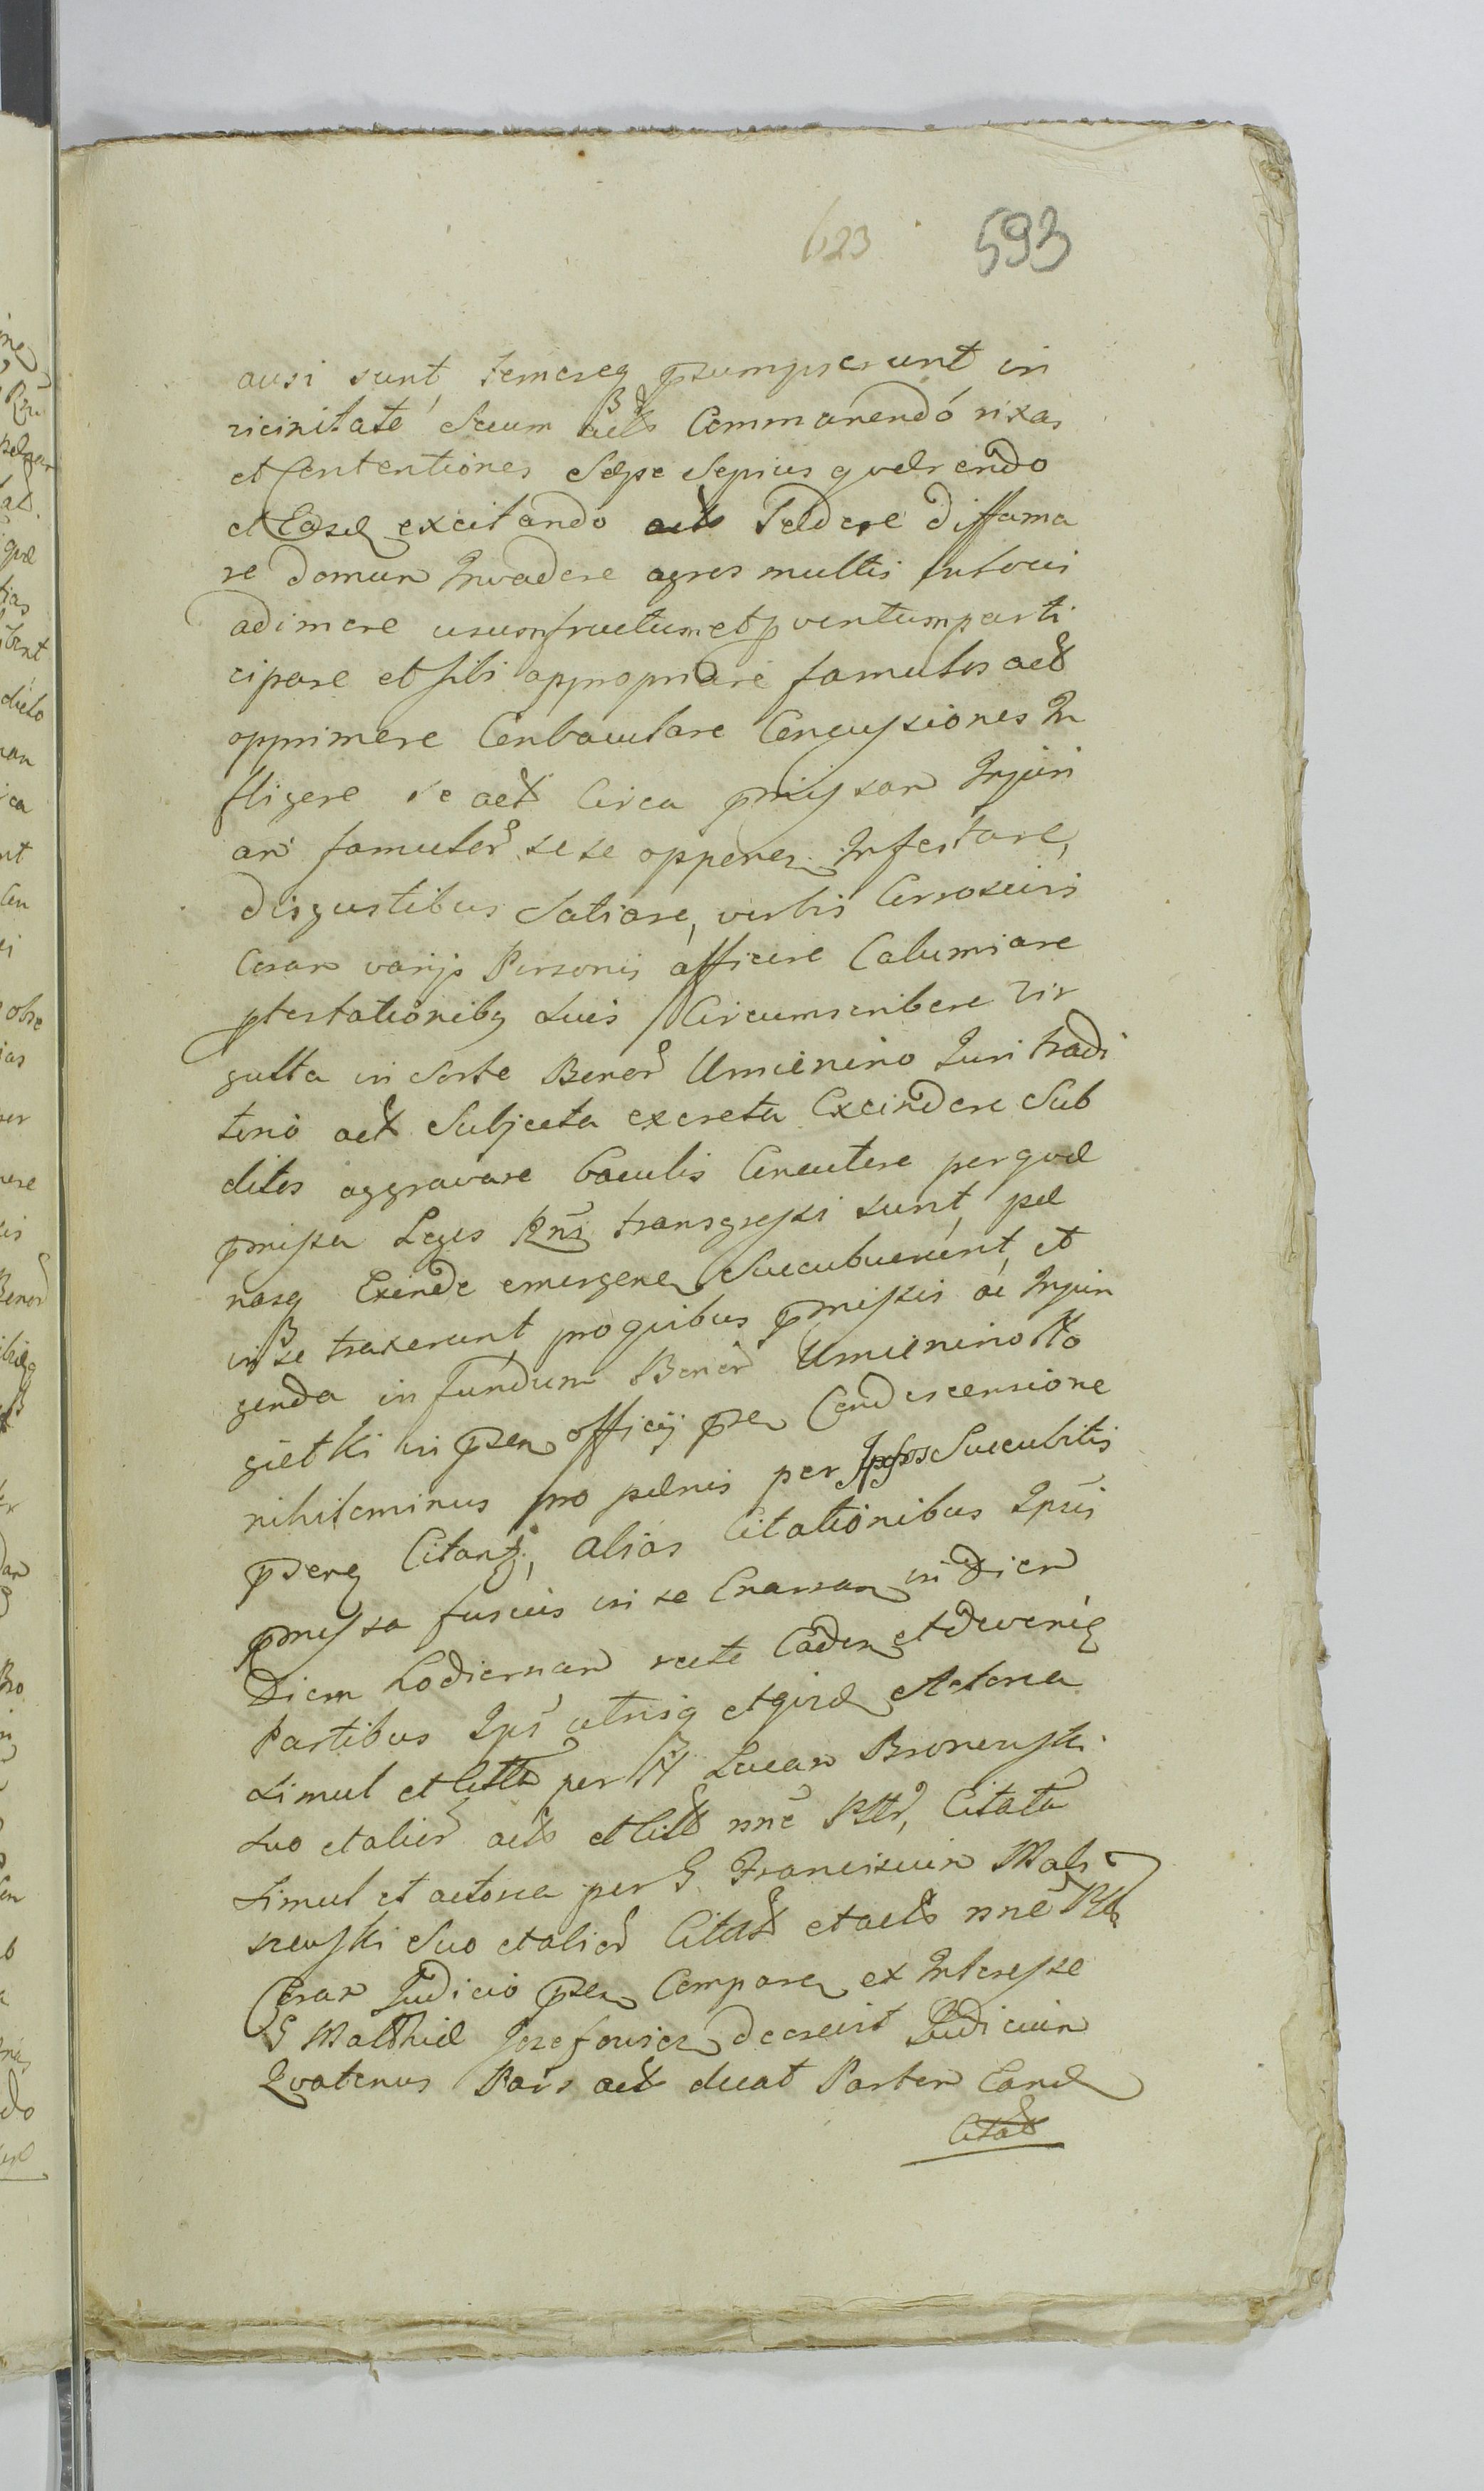 623 593
ausi sunt, temereq psumpserunt in
vicinitate Secum acts Commanendó rixas
et Contentiones Sæpe Sepius qværendo
et Easd excitando acts Lædere diffama
re domum Invadere agros multis In locis
adimere usumfructum et pventum parti
cipare et sibi appropriare famulos act
opprimere Conbaculare Concussiones In
fligere se act Circa pmissam Injuri
am famulor sese opponen Infestare,
disgustibus Satiare, verbis Corrosivis
Coram varijs Personis afficere Calumiare
ptestationibq suis Circumscribere vir
gulta in Sorte Bonor Umienino Juri tradi
torio act Subjecta excreta Excindere Sub
ditos aggravare baculis Concutere per qvæ
pmissa Leges Rni transgressi sunt, pæ
nasq Exinde emergen Succubuerunt, et
in se traxerunt, pro qvibus pmissis ac Injun
genda in fundum Bonor Umienino Ro
gietki in psen officij psen Condescensione
nihilominus pro pænis per Ipsos Succubitis
pdeng Citant, alias Citationibus Ipsis
pmissa fusius in se Enarran in diem
Diem hodiernam recte Caden et deveniq
Partibus Ips utrisq et qvid Actorea
Simul et Citta per M Lucam Bronewski
Suo et alior acts et Citt nne Pttr, Citata
Simul et actorea per G Franciscum Mali
szewski Suo et alior Citat et acts nne Ptt
Coram Judicio psen Comparen ex Interesse
G Mathiæ Jozefowicz decrevit Judicium
Qvatenus Pars act ducat Partem Eand
Citat